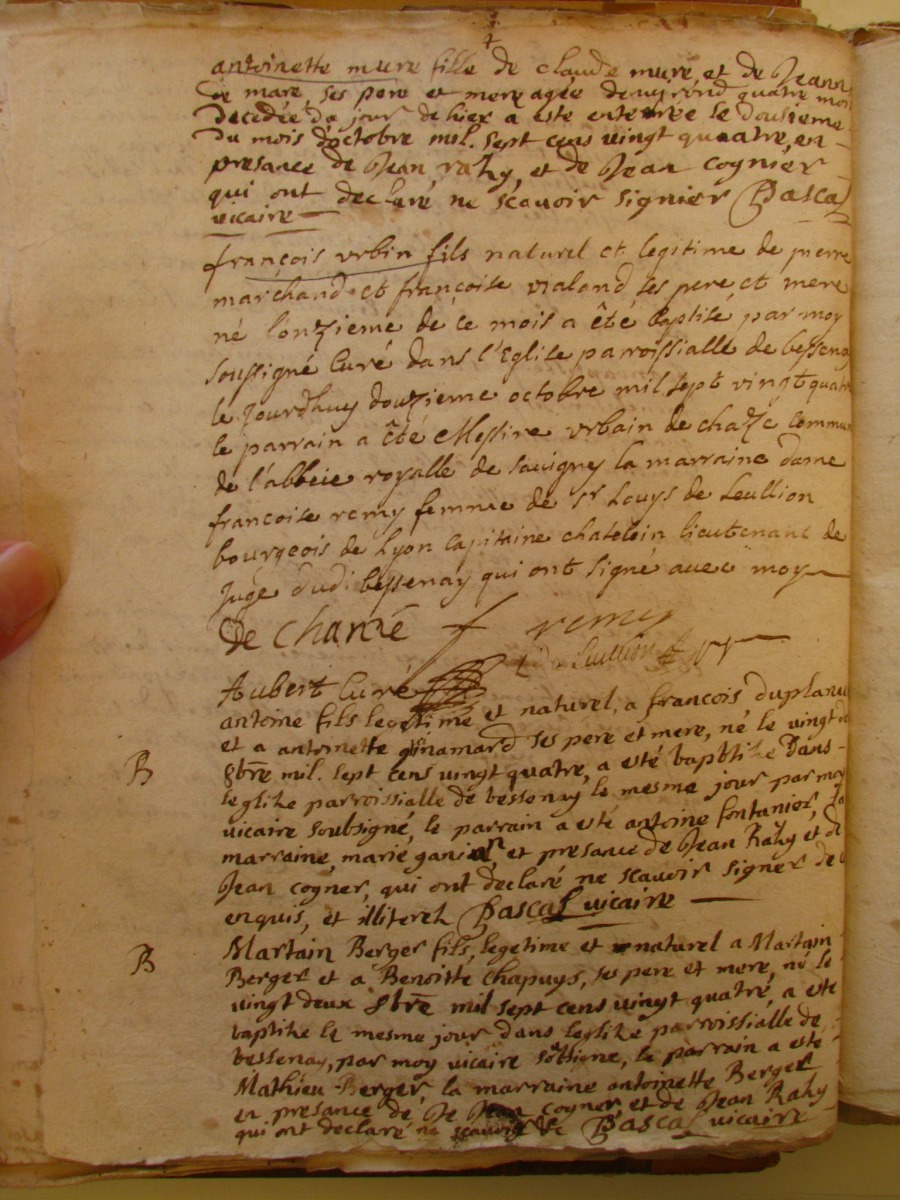 antoinette mure fille de claude mure, et de Jeane
de mare ses pere et mere agée denvirond quatre mois
decedée du jour de hier a este enterrée le dousieme
du mois d'octobre mil. sept cens vingt quuatre, en
presance de Jean rahy, et de Jean cognier
qui ont declaré ne scavoir signier Pascal
vicaire
françois urbin fils naturel et legitime de pierre
marchand et françoise vialond ses pere et mere
né l'onzieme de ce mois a êté baptisé par moy
soussigné Curé dans l'Eglise parroissialle de bessenay
le jourdhuy douzieme octobre mil sept vingt quatre
le parrain a êté Messire urbain de chazé commun
de l'abbeie royalle de savigney la marraine dame
francoise remy femme de Sr Louys de Leullion
bourgeois de Lyon Capitaine chatelain lieutenant de
Juge dudi. bessenay qui ont signé avec moy
De Chanzé f remy
Leullion
Aubert Curé
antoine fils legetime et naturel, a francois duplanu
et a antoinette ginamard ses pere et mere, né le vingt
8bre mil. sept cens vingt quatre, a esté baptihé Dans
leglihe parroissialle de bessenay le mesme jour par moy
vicaire soubsigné, le parrain a esté antoine fontanier, la
marraine, marie ganier, et presance de Jean Rahy et de
Jean cogner, qui ont declaré ne scavoir signer de
enquis, et illitereh Pascal vicaire
B
Martain Berger fils, legetime et naturel a Martain
Berger et a Benoitte Chapuys, ses pere et mere, né le
vingt deux 8bre mil sept cens vingt quatré, a este
baptihe le mesme jour dans leglihe parroissialle de
bessenay, par moy vicaire sôbsigne, le parrain a este
Mathieu Berger, la marraine antoinette Berger
en presance de Je Jean cogner et de Jean Rahy
qui ont declaré ne scavoir Pascal vicaire
B